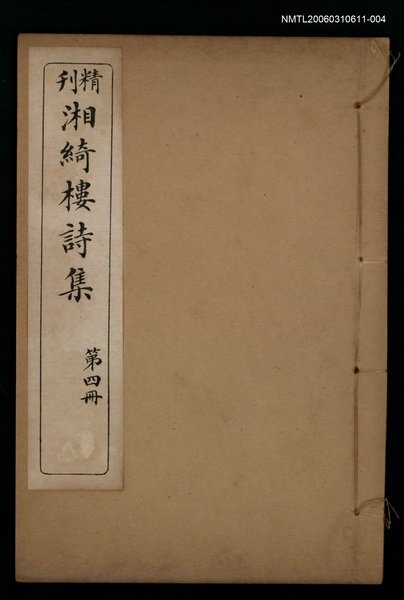 NMTL20060310611-004
精刊
湘綺樓詩集
第四冊